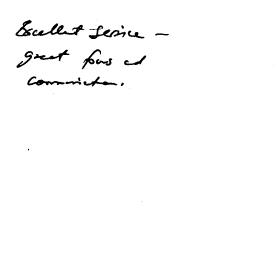 Excellent service –
great focus and
communication.